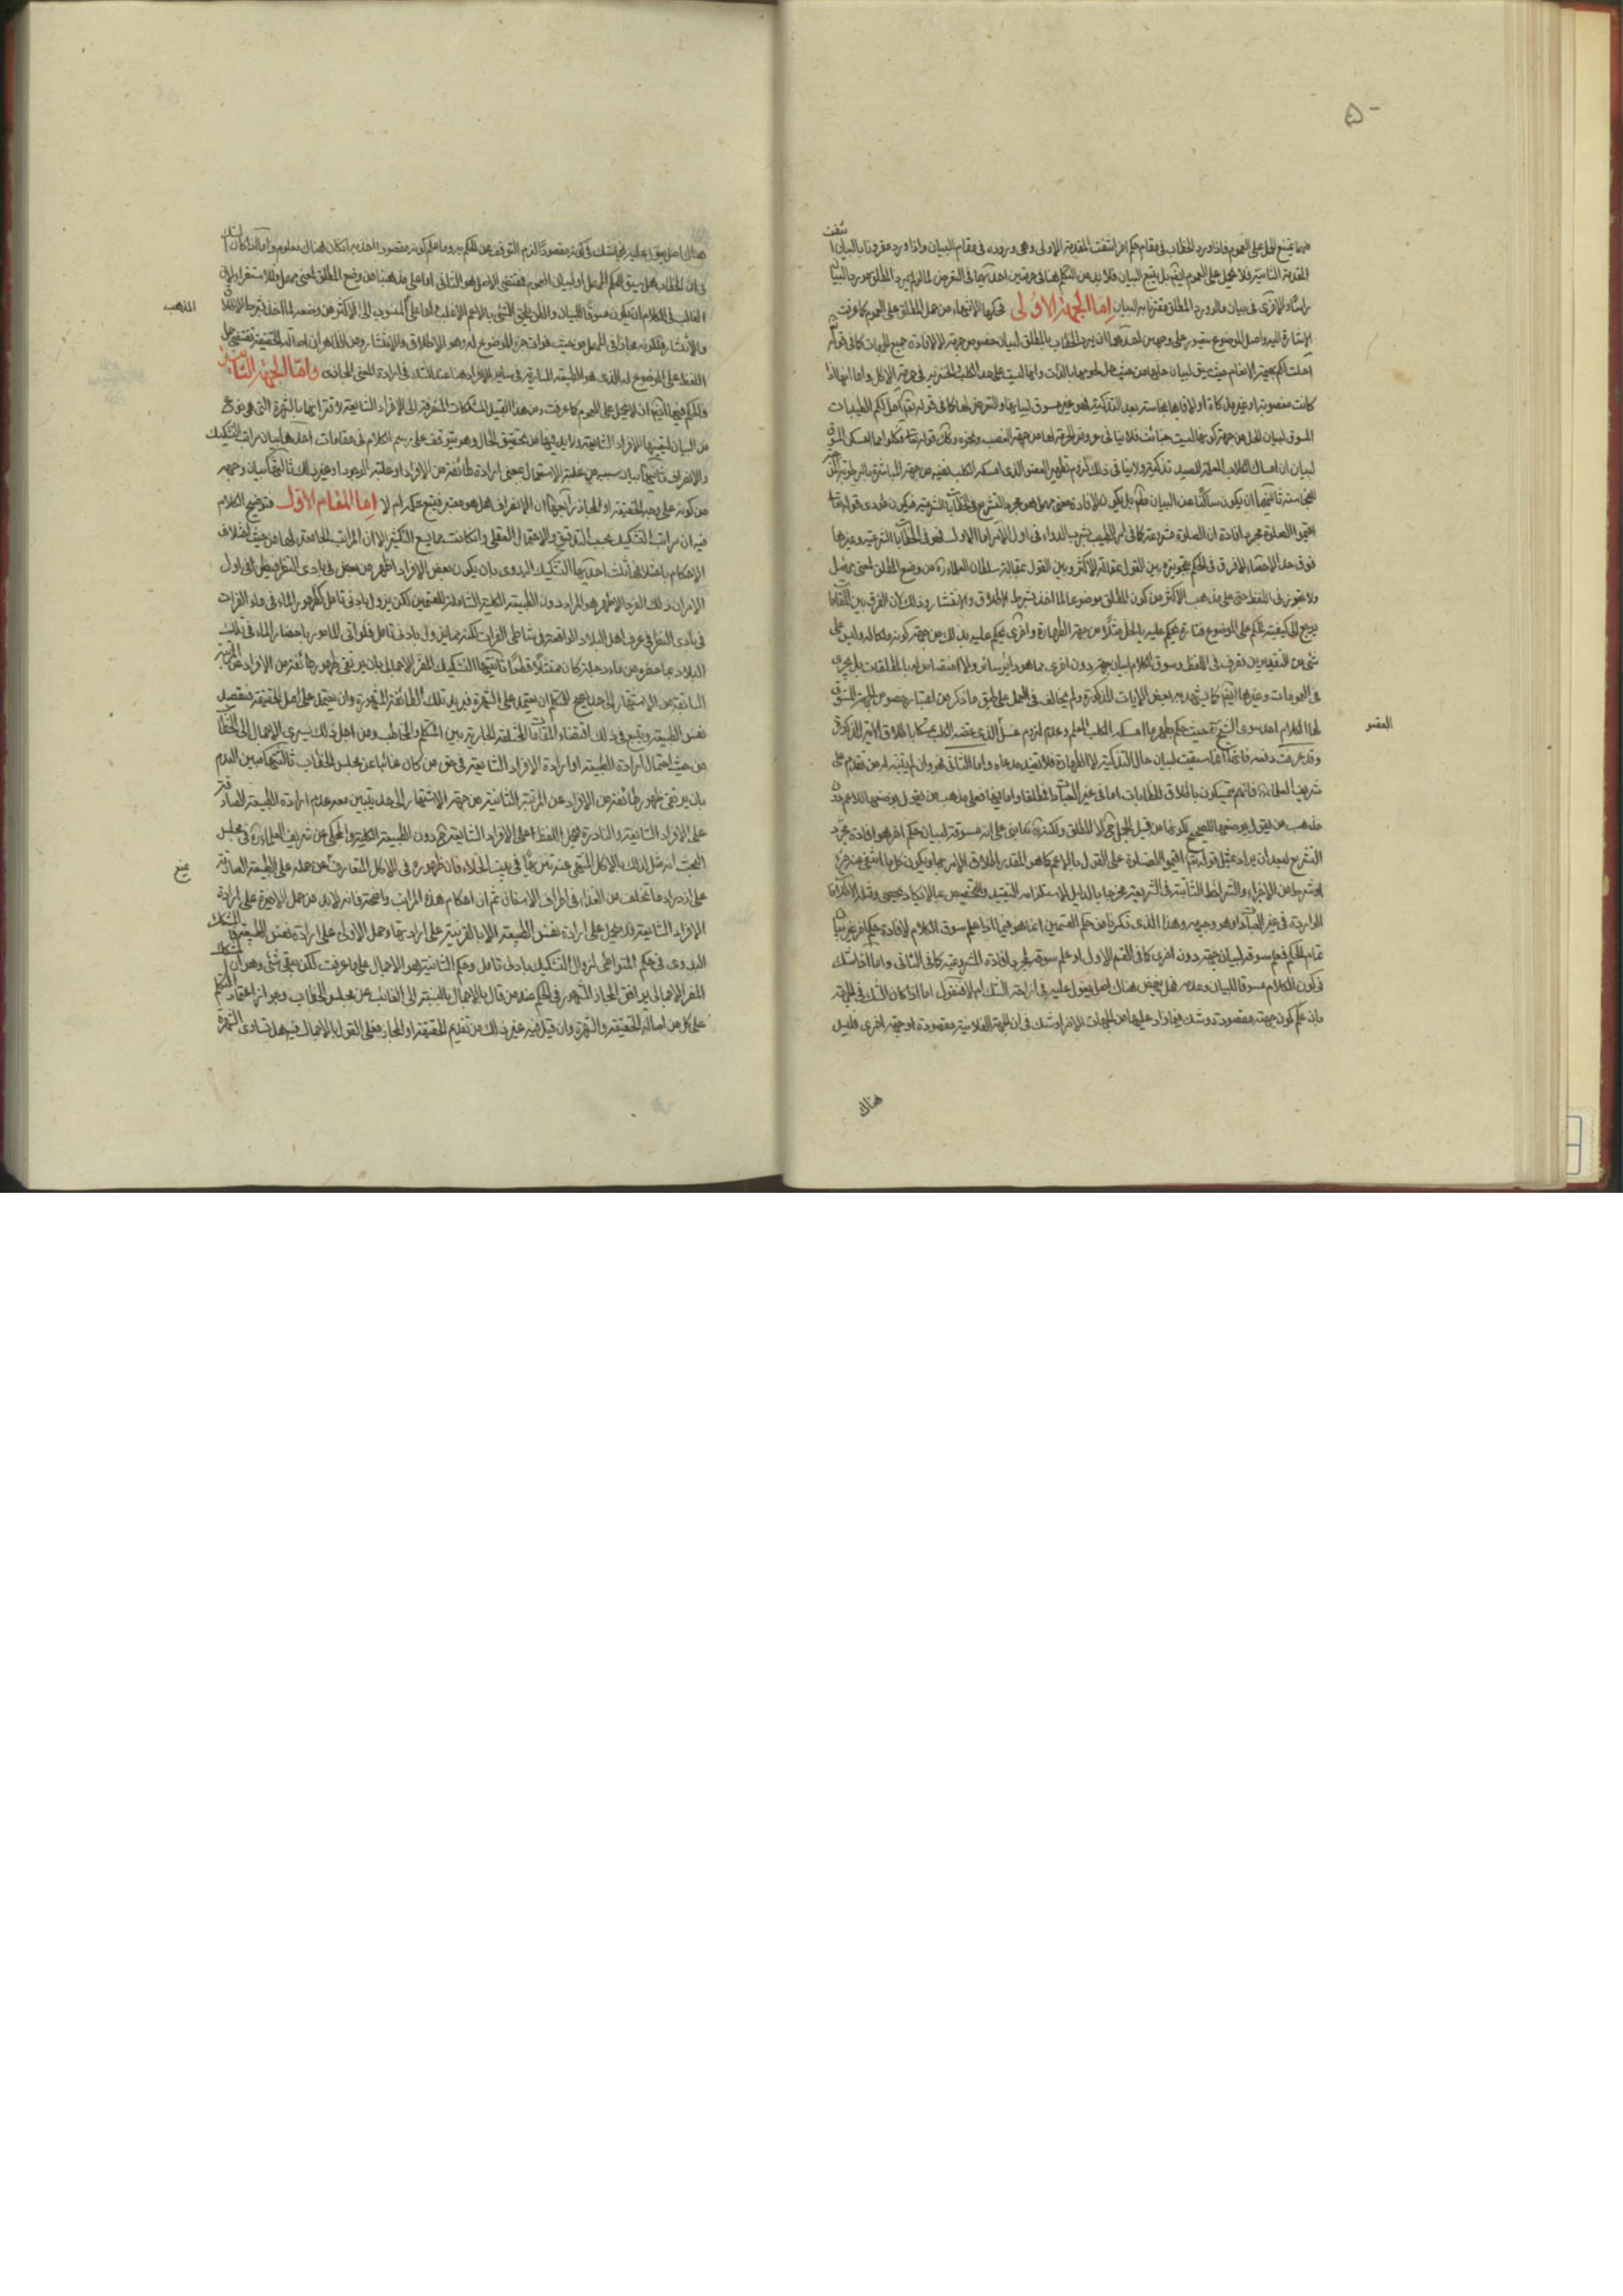 منهما يمتنع الحمل على العموم فاذا ورد الخطاب فى مقام حكم اخر انتفت المقدمة الاولى وهى وروده فى مقام البيان واذا ورد مقرونا بالبيان انتفت
المقدمة الثانية فلا يحمل على العموم ايضا بل يتبع البيان فلا بد من التكلم هنا فى جهتين احدهما فى التعرض لما لو لم يرد المطلق مورد البيان
فى بيان ما لو ورد المطلق مقترنا به البيان اما الجهة الاولى فحكمها الانتهاء من حمل المطلق على العموم كما عرفت
الاشارة اليه واصل الموضوع متصور على وجهين احدهما ان يرد الخطاب بالمطلق لبيان خصوص جهة لا لافادة جميع الجهات كما فى قوله
احلت لكم بهيمة الانعام حيث سيق لبيان حليتها من حيث
كانت مغصوبة او غير مذكاة او لاقاها نجاسة بعد التذكية فهو غير مسوق لبيانها والتعرض لها كما فى قوله تعالى احل لكم الطيبات
المسوق لبيان الحل من جهة كونها ليست خبائث فلا ينافى عروض الحرمة لها من جهة الغصب ونحوه وكذلك قوله تعالى فكلوا مما امسكن المسوق
لبيان ان امساك الكلاب المعلمة للصيد تذكية ولا ينافى ذلك لزوم تطهير العضو الذى امسكه الكلب بفيه من جهة المباشرة بالرطوبة
للنجاسة ثانيهما ان يكون ساكتا عن البيان
اقيموا الصلوة مجرد افادة ان الصلوة مشروعة كما فى امر الطبيب بشرب الدواء فى اول الامر
فوق حد الاحصاء ولا فرق فى الحكم بين القول بمقالة الاكثر وبين القول بمقالة سلطان العلماء من وضع المطلق لمعنى مهمل
ولا تجوز فى اللفظ حتى على مذهب الاكثر من كون المطلق موضوعا لما اخذ بشرط الاطلاق والانتشار وذلك لان الفرق بين المقامات
يرجع الى كيفية الحكم على الموضوع فتارة يحكم عليه بالحل مثلا من جهة الطهارة واخرى يحكم عليه بذلك من جهة كونه ملكا له وليس على
شئ من التقديرين تصرف فى اللفظ وسوق الكلام لبيان جهة دون اخرى مما هو دائر سائر ولا اختصاص له بالمطلقات بل يجرى
فى العمومات وغيرها ايضا كما يشهد به بعض الايات المذكورة ولم يخالف فى العمل على طبق ما ذكر من اعتبار خصوص الجهة المسوق
لها الكلام احد سوى الشيخ حيث حكم بطهارة ما امسكه الكلب المعلم وعدم لزوم غسل الذى عضه الكلب تمسكا باطلاق الاية المذكورة
العضو
وقد عرفت دفعه فانها انما سيقت لبيان حال التذكية لا الطهارة فلا تفيد مدعاه واما الثانى فهو وان لم يتنبه له من تقدم على
شريف العلماء فانهم يتمسكون باطلاق الخطابات
مذهب من يقول بوضعها للصحيح
التشريع لبعد ان يراد بمثل قوله تعالى اقيموا الصلوة على القول بالاعم كما هو المقدر اطلاق الامر بها ويكون كل ما انتفى عنه جزء
او شرط من الاجزاء والشرائط الثابتة فى الشريعة مخرجا بالدليل لاستلزامه التقييد والتخصيص بما لا يكاد يحصى
الواردة فى غير العبادات وهو وجيه وهذا الذى ذكرنا من حكم القسمين انما هو فيما اذا علم سوق الكلام لافادة حكم اخر غير بيان
تمام الحكم فعلم سوقه لبيان جهة دون اخرى كما فى القسم الاول او علم سوقه لمجرد افادة المشروعية كما فى الثانى واما اذا شك
فى كون الكلام مسوقا للبيان وعدمه فهل ينهض هناك اصل يعول عليه فى ازاحة الشك ام لا فنقول اما اذا كان الشك فى الجهة
بان علم كون جهة مقصودة وشك فيما زاد عليها من الجهات الاخر او شك فى ان الجهة الفلانية مقصودة او جهة اخرى فليس
هناك
هناك اصل يعول عليه
فى ان الخطاب هل سيق للحكم المهمل او لبيان العموم فمقتضى الاصل هو الثانى اما على مذهبنا من وضع المطلق لمعنى مهمل
الغالب فى الكلام ان يكون مسوقا للبيان والظن يلحق الشئ بالاعم الاغلب واما على المنسوب الى الاكثر من وضعه لما اخذ بشرط الاطلاق
المذهب
والانتشار فلكونه مجازا فى المهمل من حيث فوات جزء الموضوع له وهو الاطلاق والانتشار ومن الظاهر ان اصالة الحقيقة تقتضى حمل
اللفظ على الموضوع له الذى هو الطبيعة السارية فى سائر الافراد هنا عند الشك فى ارادة المعنى المجازى واما الجهة الثانية
فالحكم فيها ايضا ان لا يحمل على العموم كما عرفت ومن هذا القبيل المشككات المنصرفة الى الافراد الشايعة لاقترانها بالشهرة التى هى نوع
من البيان لتعيينها للافراد الشايعة ولا بد فيها من تحقيق الحال وهو يتوقف على رسم الكلام فى مقامات احدها بيان مراتب التشكيك
والانصراف ثانيها بيان سببه من غلبة الاستعمال بمعنى ارادة طائفة من الافراد او غلبة الوجود او غير ذلك ثالثها بيان وجهه
من كونه على وجه الحقيقة او المجاز رابعها ان الانصراف هل هو معتبر فيتبع حكمه ام لا اما المقام الاول فتوضيح الكلام
فيه ان مراتب التشكيك بحسب التدقيق والاحتمال العقلى وان كانت مما يسع التكثير الا ان المراتب الجامعة لها من حيث اختلاف
الاحكام باختلافها ثلث احديها التشكيك البدوى بان يكون بعض الافراد اظهر من بعض فى بادى النظر فيظن فى اول
الامر ان ذلك الفرد الاظهر هو المراد دون الطبيعة الكلية الشاملة للقسمين لكن يزول بادنى تامل كظهور الماء فى ماء الفرات
فى بادى النظر فى عرف اهل البلاد الواقعة فى شاطى الفرات لكنه مما يزول بادنى تامل فلو اتى المامور باحضار الماء فى تلك
البلاد بما حضره من ماء دجلة كان ممتثلا قطعا ثانيتها التشكيك المضر الاجمالى بان يرتقى ظهور طائفة من الافراد عن المرتبة
السابقة من الاشتهار الى حد يصح للمتكلم ان يعتمد على الشهرة فيريد تلك الطائفة المشهورة وان يعتمد على اصل الحقيقة فيقصد
نفس الطبيعة ويتبع فى ذلك اقتضاء المقامات المختلفة الجارية بين المتكلم والمخاطب ومن اجل ذلك يسرى الاجمال الى الخطاب
من حيث احتمال ارادة الطبيعة او ارادة الافراد الشايعة فى حق من كان غائبا عن مجلس الخطاب ثالثتها مبين العدم
بان يرتقى ظهور طائفة من الافراد عن المرتبة الثانية من جهة الاشتهار الى حد يتبين معه عدم ارادة الطبيعة الصادقة
على الافراد الشايعة والنادرة فيحمل اللفظ على الافراد الشايعة دون الطبيعة الكلية والمحكى عن شريف العلماء فى مجلس
البحث انه مثل لذلك بالاكل
منع
على ازدراد ما تخلف من الغذاء فى اطراف الاسنان ثم ان احكام هذه المراتب واضحة فانه لا بد من حمل الاخيرة على ارادة
الافراد الشايعة فلا يحمل على ارادة نفس الطبيعة الا بالقرينة على ارادتها وحمل الاولى على ارادة نفس الطبيعة
البدوى فى حكم المتواطى لزوال التشكيك بادنى تامل وحكم الثانية هو الاجمال على ما عرفت لكن يبقى شئ وهو ان
المضر الاجمالى يوافق المجاز المشهور فى الحكم عند من قال بالاجمال بالنسبة الى الغائب عن مجلس الخطاب وجواز اعتماد المتكلم
على كل من اصالة الحقيقة والشهرة وان قيل فيه غير ذلك من تقديم الحقيقة او المجاز فعلى القول بالاجمال فيه هل تساوى الشهرة